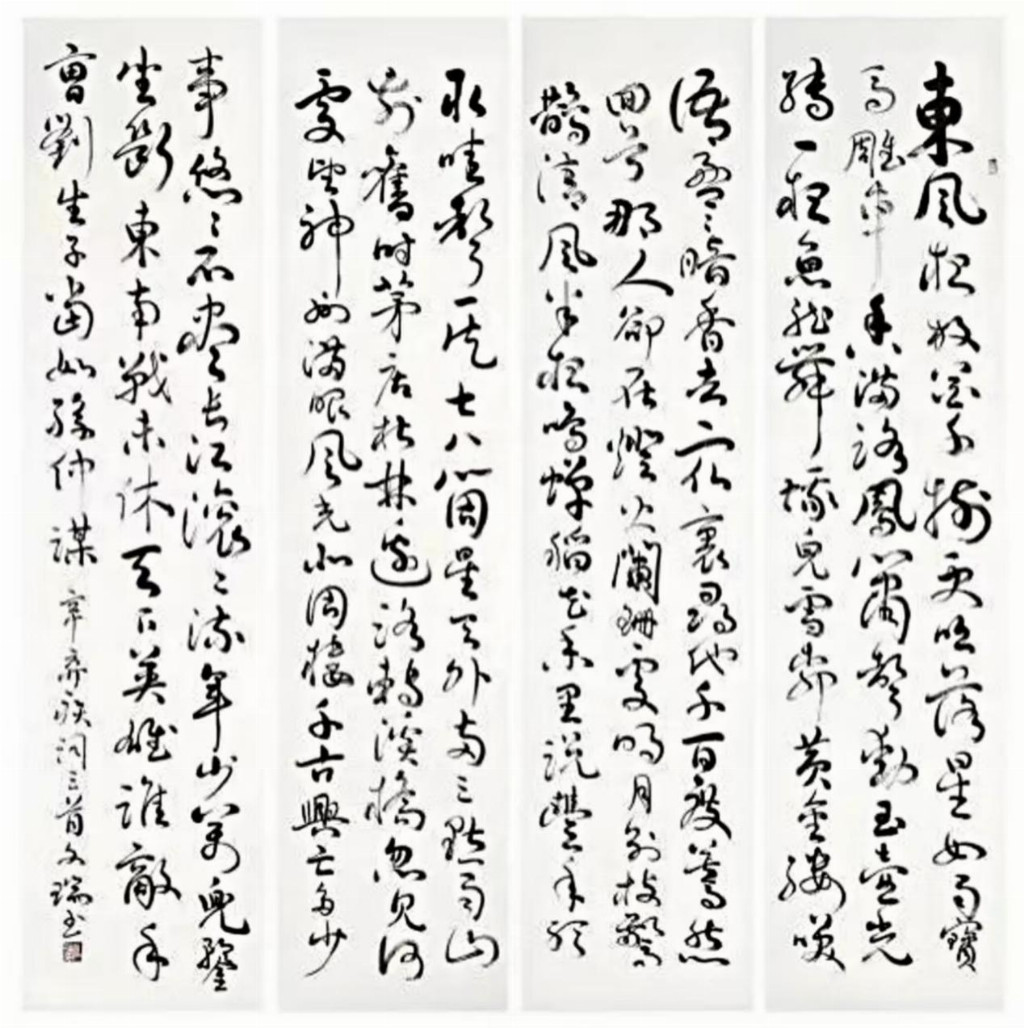 東風夜放花千樹更吹落星如雨寶
馬雕車香滿路鳳簫聲動玉壺光
轉一夜魚龍舞蛾兒雪柳黃金縷笑
語盈〻暗香去眾裏尋他千百度驀然
回首那人卻在燈火闌珊處明月別枝驚
鵲清風半夜鳴蟬稻花香里說豐年聽
取蛙聲一片七八箇星天外兩三點雨山
前舊時茅店社林邊路轉溪橋忽見何
處望神州滿眼風光北固樓千古興亡多少
事悠〻不盡長江滾〻流年少萬兜鍪
坐斷東南戰未休天下英雄誰敵手
曹劉生子當如孫仲謀 辛棄疾詞三首文瑞書